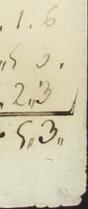 . 1. 6
„ 5 3.
„ 2„3
• 5„ 3„